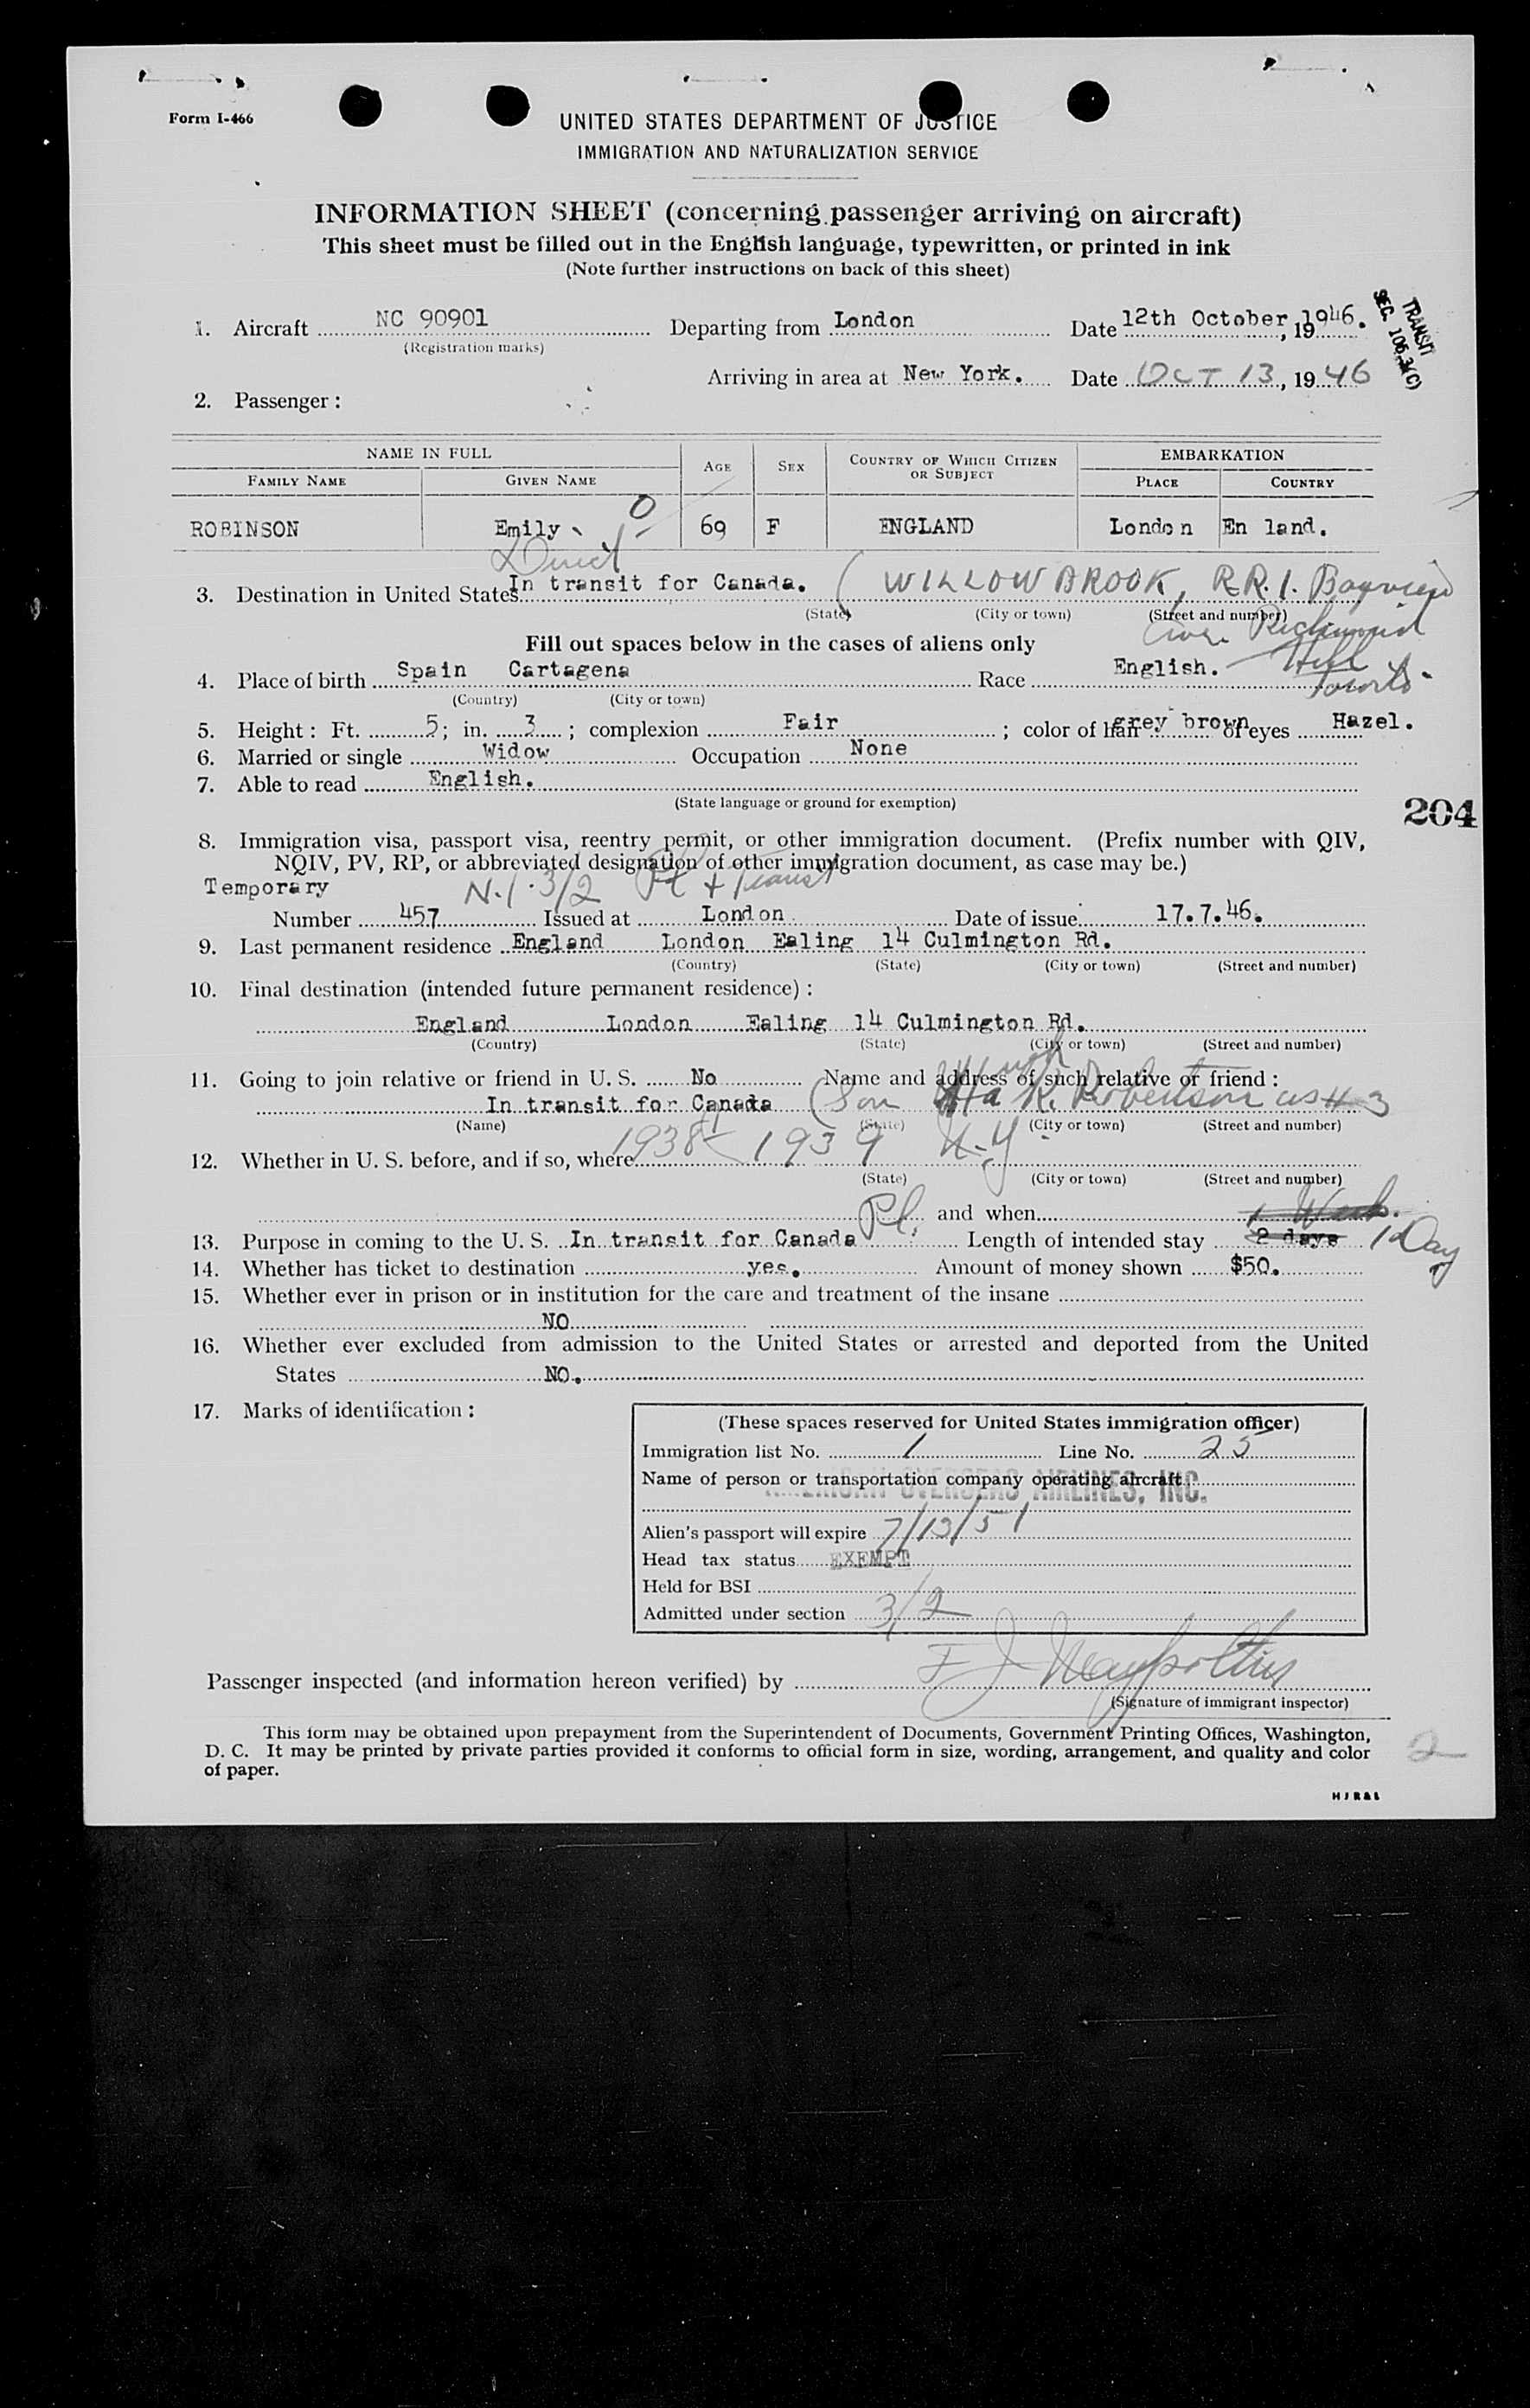 Form I-466
UNITED STATES DEPARTMENT OF JUSTICE
IMMIGRATION AND NATURALIZATION SERVICE
INFORMATION SHEET (concerning passenger arriving on aircraft)
This sheet must be filled out in the English language, typewritten, or printed in ink
(Note further instructions on back of this sheet)
1. Aircraft NC 90901 Departing from London Date 12th October, 1946.
(Registration marks)
TRANSIT
SEC. 106.3(C)
Arriving in area at New York. Date OCT 13, 1946
2. Passenger:
NAME IN FULL AGE SEX COUNTRY OF WHICH CITIZEN OR SUBJECT EMBARKATION
FAMILY NAME GIVEN NAME PLACE COUNTRY
0
ROBINSON Emily 69 F ENGLAND London En land.
Direct
3. Destination in United States In transit for Canada. ( WILLOW BROOK, R.R.1. Bayview
(State) (City or town) (Street and number)
Richmond
Fill out spaces below in the cases of aliens only
Hill
4. Place of birth Spain Cartagena Race English.
Toronto
(Country) (City or town)
5. Height: Ft. 5; in. 3; complexion Fair; color of hair grey brown of eyes Hazel.
6. Married or single Widow Occupation None
7. Able to read English.
(State language or ground for exemption)
204
8. Immigration visa, passport visa, reentry permit, or other immigration document. (Prefix number with QIV,
NQIV, PV, RP, or abbreviated designation of other immigration document, as case may be.)
Temporary N.I. 3/2 Pl + Transit
Number 457 Issued at London Date of issue 17.7.46.
9. Last permanent residence England London Ealing 14 Culmington Rd.
(Country) (State) (City or town) (Street and number)
10. Final destination (intended future permanent residence):
England London Ealing 14 Culmington Rd.
(Country) (State) (City or town) (Street and number)
11. Going to join relative or friend in U. S. No Name and address of such relative or friend:
In transit for Canada (Son Hugh R. Robertson as #3
(Name) (State) (City or town) (Street and number)
12. Whether in U. S. before, and if so, where 1938 1939 N-Y
(State) (City or town) (Street and number)
Pl. and when 1 Week.
13. Purpose in coming to the U. S. In transit for Canada Length of intended stay 2 days 1 Day
14. Whether has ticket to destination yes. Amount of money shown $50.
15. Whether ever in prison or in institution for the care and treatment of the insane
NO
16. Whether ever excluded from admission to the United States or arrested and deported from the United
States NO.
17. Marks of identification:
(These spaces reserved for United States immigration officer)
Immigration list No. 1 Line No. 25
Name of person or transportation company operating aircraft
AMERICAN OVERSEAS AIRLINES, INC.
Alien's passport will expire 7/13/51
Head tax status EXEMPT
Held for BSI
Admitted under section 3/2
Passenger inspected (and information hereon verified) by F J
(Signature of immigrant inspector)
This form may be obtained upon prepayment from the Superintendent of Documents, Government Printing Offices, Washington,
D. C. It may be printed by private parties provided it conforms to official form in size, wording, arrangement, and quality and color
of paper.
2
H J R & L